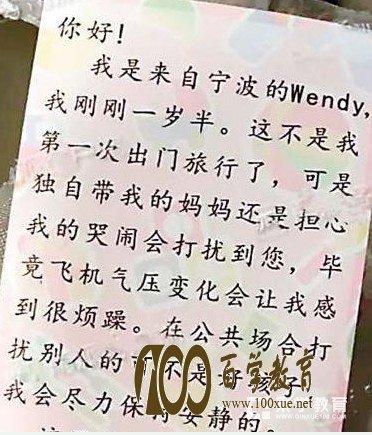 你好!
我是来自宁波的Wendy,
我刚刚一岁半。这不是我
第一次出门旅行了，可是
独自带我的妈妈还是担心
我的哭闹会打扰到您，毕
竟飞机气压变化会让我感
到很烦躁。在公共场合打
扰别人的可不是好孩子!
我会尽力保持安静的。
100百学教育
www.100xue.net